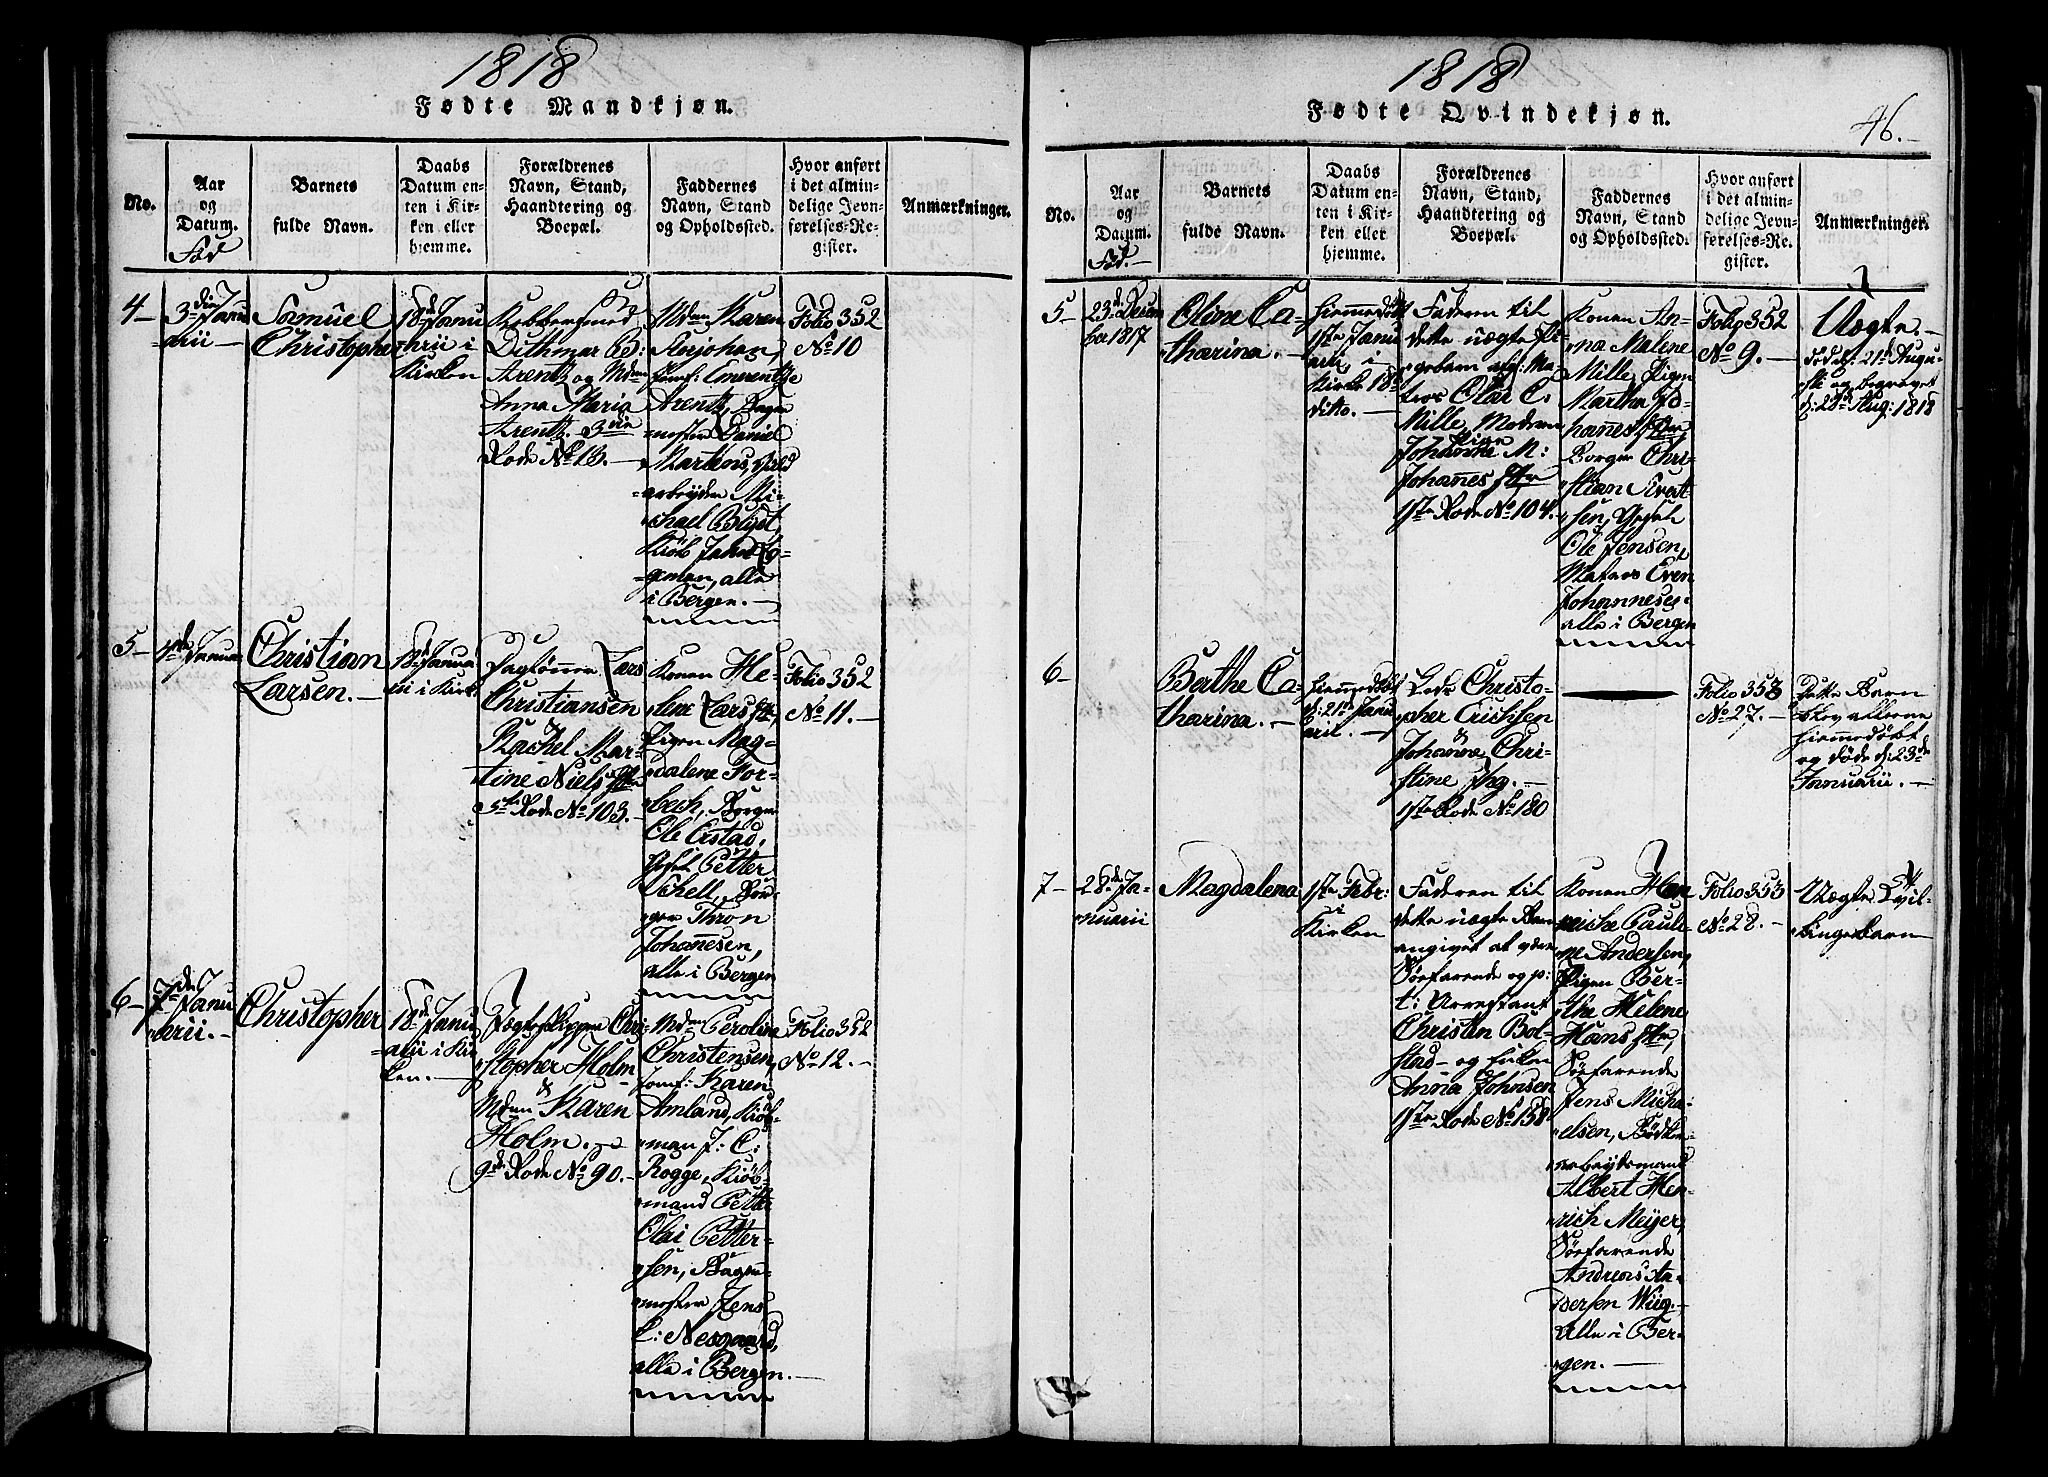 1818
Fødte Mandkjøn.
No.
Aar
og
Datum.
Fød
Barnets
fulde Navn.
Daabs
Datum en-
ten i Kir-
ken eller
hjemme.
Forældrenes
Navn, Stand,
Haandtering og
Boepæl.
Faddernes
Navn, Stand
og Opholdssted.
Hvor anført
i det almin-
delige Jevn-
førelses-Re-
gister.
Anmærkninger.
4
3die Janu
arii
Samuel
Christopher
18de Janu
arii i
Kirken
Kobbersmed
Dithmar B:
Arentz og Mdme
Anna Maria
Arentz. 3die
Rode No 16.
Mdme Karen
Arentz, Bager
mester Daniel
Martens,
Michael
i Bergen.
Folio 352
No 10
5
Christian
Larsen.
18de Janua
rii i Kirk
Daglønner Lars
Christiansen
&
Rachel Mar-
tine Niels dtr
5te Rode No 103.
Konen He-
lene Lars dtr,
Pigen Mag-
dalene For-
bech, Borger
Ole Eistad,
Petter
Schell, Bor-
ger Thron
Johannesen,
alle i Bergen
Folio 352
No 11.
6
7de Janu
arii.
Christopher
18de Janu
arii i Kir
ken.
Chri-
stopher Holm
&
Mdme Karen
Holm.
9de Rode No 90.
Mdme Caroline
Christensen,
Jomf: Karen
Amland, Kiøb-
man J: C:
Rogge, Kiøb-
mand Petter
Olai Petter-
sen, Bager-
mester Jens
L: Nesgaard,
alle i Bergen.
Folio 352
No 12.
1818
Fødte Qvindekjøn.
46.
No.
Aar
og
Datum.
Fød.
Barnets
fulde Navn.
Daabs
Datum en-
ten i Kir-
ken eller
hjemme.
Forældrenes
Navn, Stand,
Haandtering og
Boepæl.
Faddernes
Navn, Stand
og Opholdssted.
Hvor anført
i det almin-
delige Jevn-
førelses-Re-
gister.
Anmærkninger.
5
23de Decem
ber 1817
Oline Ca-
tharina.
Hiemmedøbt
1ste Janu
arii, i
Kirke 18de
ditto.
Faderen til
dette uægte Pi
gebarn afg: Ma-
tros Olai C.
Mille, Moderen
Pige
Johanne M:
Johannes dtr
1ste Rode No 104.
Konen An-
na Malene
Mille, Pigen
Martha Jo-
hannes dtr
Borger Chri-
stian Kvat-
sen,
Ole Jensen,
Matros Even
Johannesen
alle i Bergen
Folio 352
No 9.
Uægte.
død d: 21de Augu-
sti og begravet
d: 28de Aug: 1818
6
Berthe Ca-
tharina.
Hiemmedøbt
d: 21de Janu
arii.
Christo-
pher Erichsen
&
Johanne Chri-
stine
1ste Rode No 180
Folio 353
No 27.
Dette Barn
blev allene
hiemmedøbt
og døde d: 23de
Januarii.
7
28de Ja-
nuarii
Magdalena
1ste Febr:
i
Kirken
Faderen til
dette uægte Barn
angivet at være
Søefarende og p:
t: Arrestant
Christen Bol-
stad og Enken
Anna Johnsen
1ste Rode No 158
Konen Hen
riche Pauli-
ne Andersen,
Pigen Ber-
the Helene
Hans dtr,
Søefarende
Jens Micha-
elsen, Bødker
arbeydsmand
Albert Hen-
rich Meyer,
Søefarende
Andreas An-
dersen Wiig.
Alle i Ber-
gen.
Folio 353
No 28.
Uægte Tvil-
lingebarn